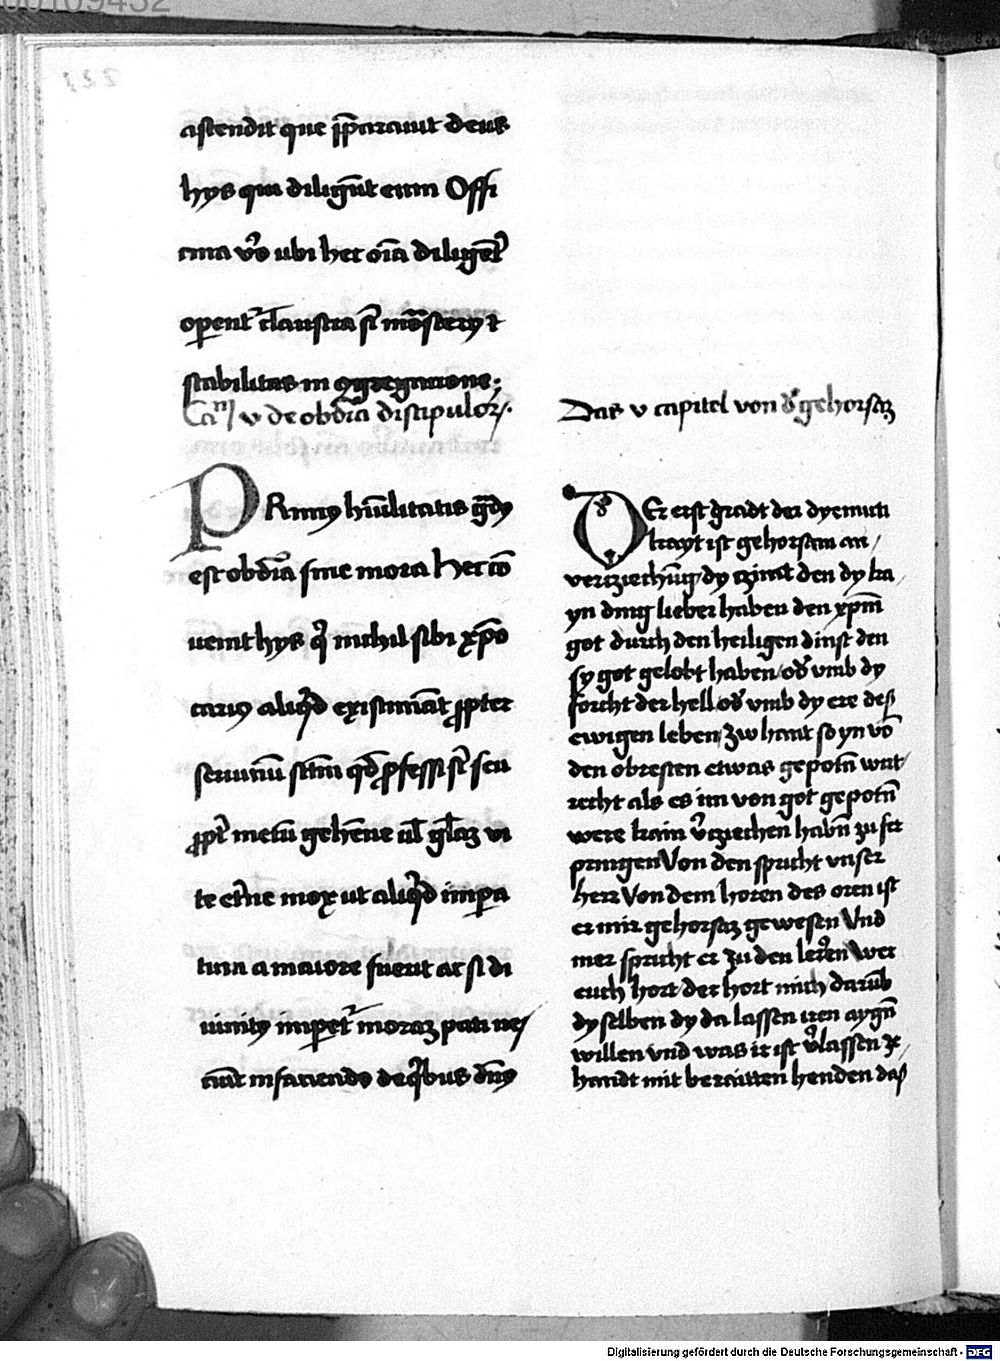 astendit que p̄parauit deus
hys qui diligūt eum Offi
cina v̾o ubi hec oīa diligēt̾
operent̾ claustra s̄t mōstery ⁊
stabilitas in ꝯgregatione:
Cam̄ v de obdīa discipuloꝝ.
PRimꝯ hūilitatis gͣdꝯ
est obdīa sine mora hec cō
uenit hys qͥ nichil sibi xp̄o
cariꝯ aliqͥd existimāt ꝓpter
seruiciū scm̄ qd̄ ꝓfessi s̄t seu
ꝓpt̾ metū gehēne ul̄ gl̄iaꝫ vi
te et̾ne mox ut aliqͥd impa
tum a maiore fuerit ac si di
uinitꝯ imperet̾ moraꝫ pati nes
ciūt in faciendo de qͥbus dn̄s
Das v capitel von d̾ gehorsaꝫ
DEr erst gradt der dyemuti
kayt ist gehorsam an
vercziechūg dy czimt den dy ka
yn ding lieber haben den xp̄m
got durch den heiligen dinst den
sy got gelobt haben od̾ vmb dy
forcht der hell od̾ vmb dy ere deß
ewigen leben zw hant so yn vō
den obresten etwas gepotn̄ wirt
recht als es im von got gepotn̄
were kain v̾cziechen habn̄ zu fer
pringen Von den spricht vnser
herr Von dem horen des oren ist
er mir gehorsaꝫ gewesen Vnd
mer spricht er zu den lerern Wer
euch hort der hort mich darūb
dy selben dy da lassen iren aygn̄
willen vnd was ir ist v̾lassen ze
handt mit beraitten henden daß
Digitalisierung gefördert durch die Deutsche Forschungsgemeinschaft - DFG